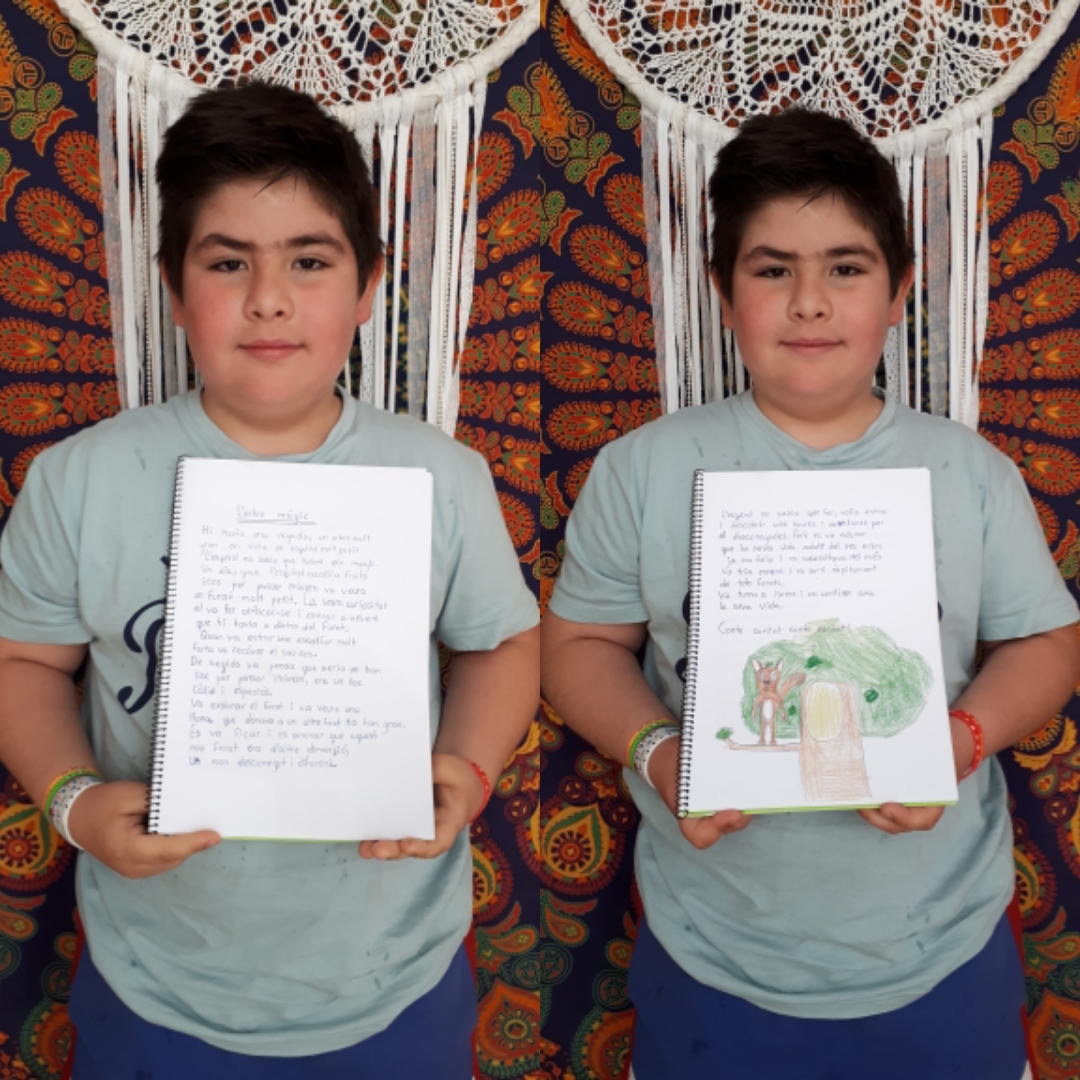 L'arbre màgic
Hi havia una vegada, un arbre molt
gran on vivia un esquirol molt petit.
L'esquirol no sabia que l'arbre era màgic.
Un dia, quan l'esquirol recollia fruits
secs per passar l'hivern va veure
un forat molt petit. La seva curiositat
el va fer atracar-se i entrar a veure
que hi havia a dintre del forat.
Quan va entrar una escalfor molt
forta va recórrer el seu cos.
De seguida va pensar que seria un bon
lloc per passar l'hivern, era un lloc
càlid i espaiós.
Va explorar el forat i va veure una
llum que donava a un altre forat no tan gran.
Es va ficar i es adonar que aquell
nou forat era d'altre dimensió,
un mon desconegut i diferent.
L'esquirol no sabia que fer, volia entrar
i descobrir nous mons i aventures per
el desconegudes. Però es va adonar
que la seva vida adalt del seu arbre
ja era feliç i no necessitava res més
Va tira enrera i va sortir
de tots forats.
Va tornar a l'arbre i va continuar amb
la seva vida.
Conte contat conte